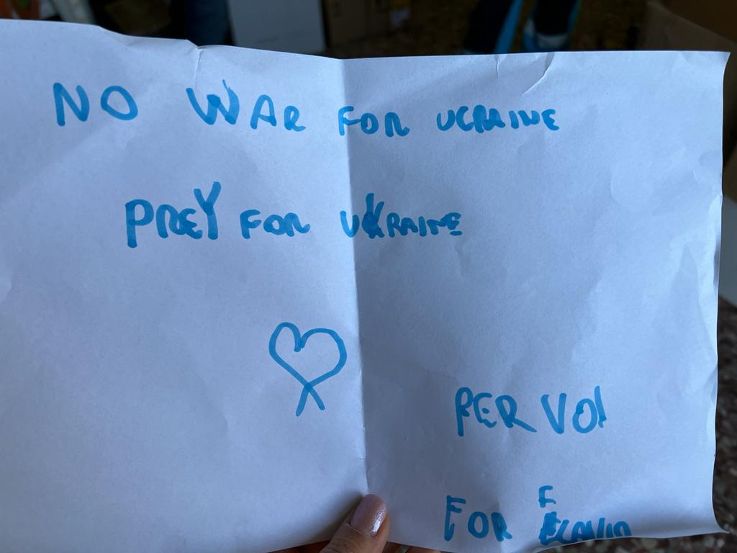 NO WAR FOR UCRAINE
PREY FOR UKRAINE
PER VOI
FOR